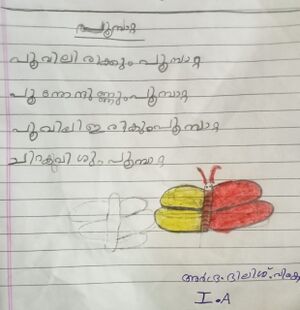 പൂമ്പാറ്റ
പൂവിലിരിക്കും പൂമ്പാറ്റ
പൂന്തേനുണ്ണും പൂമ്പാറ്റ
പൂവിലിഇരികുംപൂമ്പാറ്റ
ചിറകുവിശും പൂമ്പാറ്റ
I.A